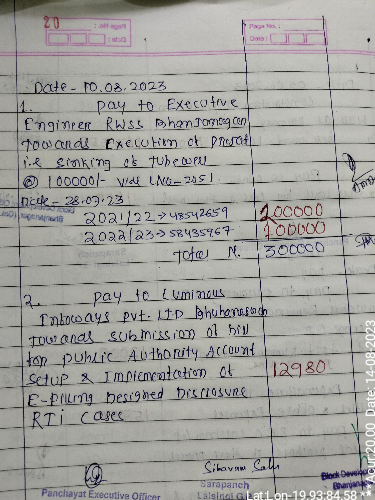 20
Page No. :
Date :
Date - 10.08.2023
1. Pay to Executive
Engineer RWSS Bhanjanagar
Towards Execution of Project
i.e sinking of tubewell
@ 100000/- vide LNo-2051
Date - 28.07.23
2021/22 → 48542659 200000
2022/23 → 58435967 100000
Total R. 300000
2. Pay to Luminous
Infoways Pvt. LTD Bhubaneswar
Towards submission of bill
for public Authority Account
setup & Implementation of 12980
E-Filling Designed Disclosure
RTI cases
Sibaram Sahu
Panchayat Executive Officer
Sarapanch
Lalsingi G
Block Develop
Bhanjana
Lat Lon-19.93:84.58 ** Acur:20.00 Date: 14-08-2023